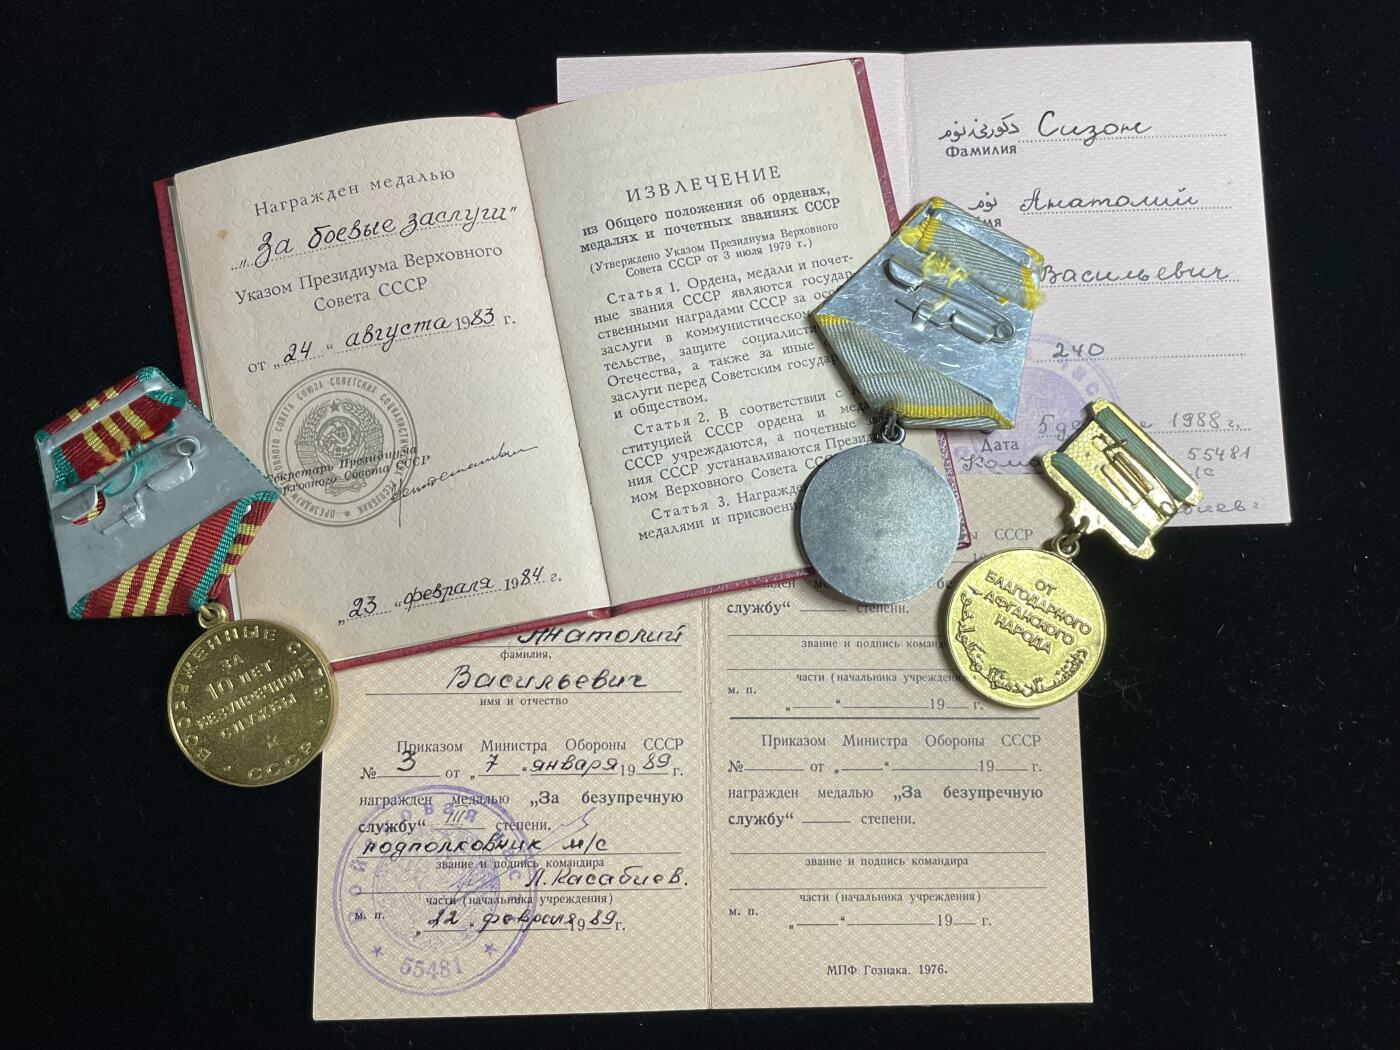 Награжден медалью
„За боевые заслуги"
Указом Президиума Верховного
Совета СССР
от „24" августа 1983 г.
Секретарь Президиума
Верховного Совета СССР
„23" февраля 1984 г.
ИЗВЛЕЧЕНИЕ
из Общего положения об орденах,
медалях и почетных званиях СССР
(Утверждено Указом Президиума Верховного
Совета СССР от 3 июля 1979 г.)
Статья 1. Ордена, медали и почет-
ные звания СССР являются государ-
ственными наградами СССР за осо
заслуги в коммунистическом
тельстве, защите социалисти
Отечества, а также за иные
заслуги перед Советским государ
и обществом.
Статья 2. В соответствии с К
ституцией СССР ордена и меда
СССР учреждаются, а почетные зв
ния СССР устанавливаются Президи
мом Верховного Совета ССС
Статья 3. Награжде
медалями и присвоени
Сизон
Фамилия
نوم Анатолий
мя
Васильевич
240
5 де 1988 г.
Дата
55481
м/с
ВООРУЖЕННЫЕ СИЛЫ СССР
ЗА
10 ЛЕТ
БЕЗУПРЕЧНОЙ
СЛУЖБЫ
ОТ
БЛАГОДАРНОГО
АФГАНСКОГО
НАРОДА
Анатолий
фамилия,
Васильевич
имя и отчество
Приказом Министра Обороны СССР
№ 3 от „7" января 1989 г.
награжден медалью „За безупречную
службу" III степени.
подполковник м/с
звание и подпись командира
Л. Касабиев.
части (начальника учреждения)
м. п. „22" февраля 1989 г.
ВОЙСКОВАЯ ЧАСТЬ
55481
СССР
службу" степени.
звание и подпись команд
части (начальника учрежден
м. п. „ " 19 г.
Приказом Министра Обороны СССР
№ от „ " 19 г.
награжден медалью „За безупречную
службу" степени.
звание и подпись командира
части (начальника учреждения)
м. п. „ " 19 г.
МПФ Гознака. 1976.